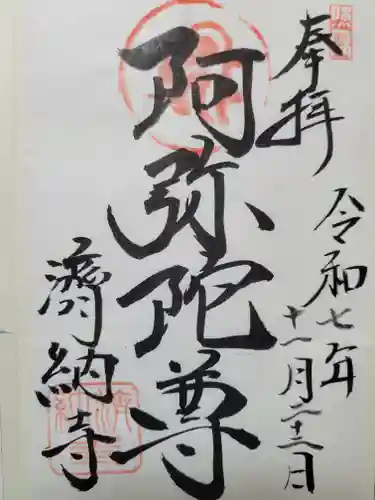 奉拝
令和七年
十一月二十二日
阿弥陀尊
濟納寺